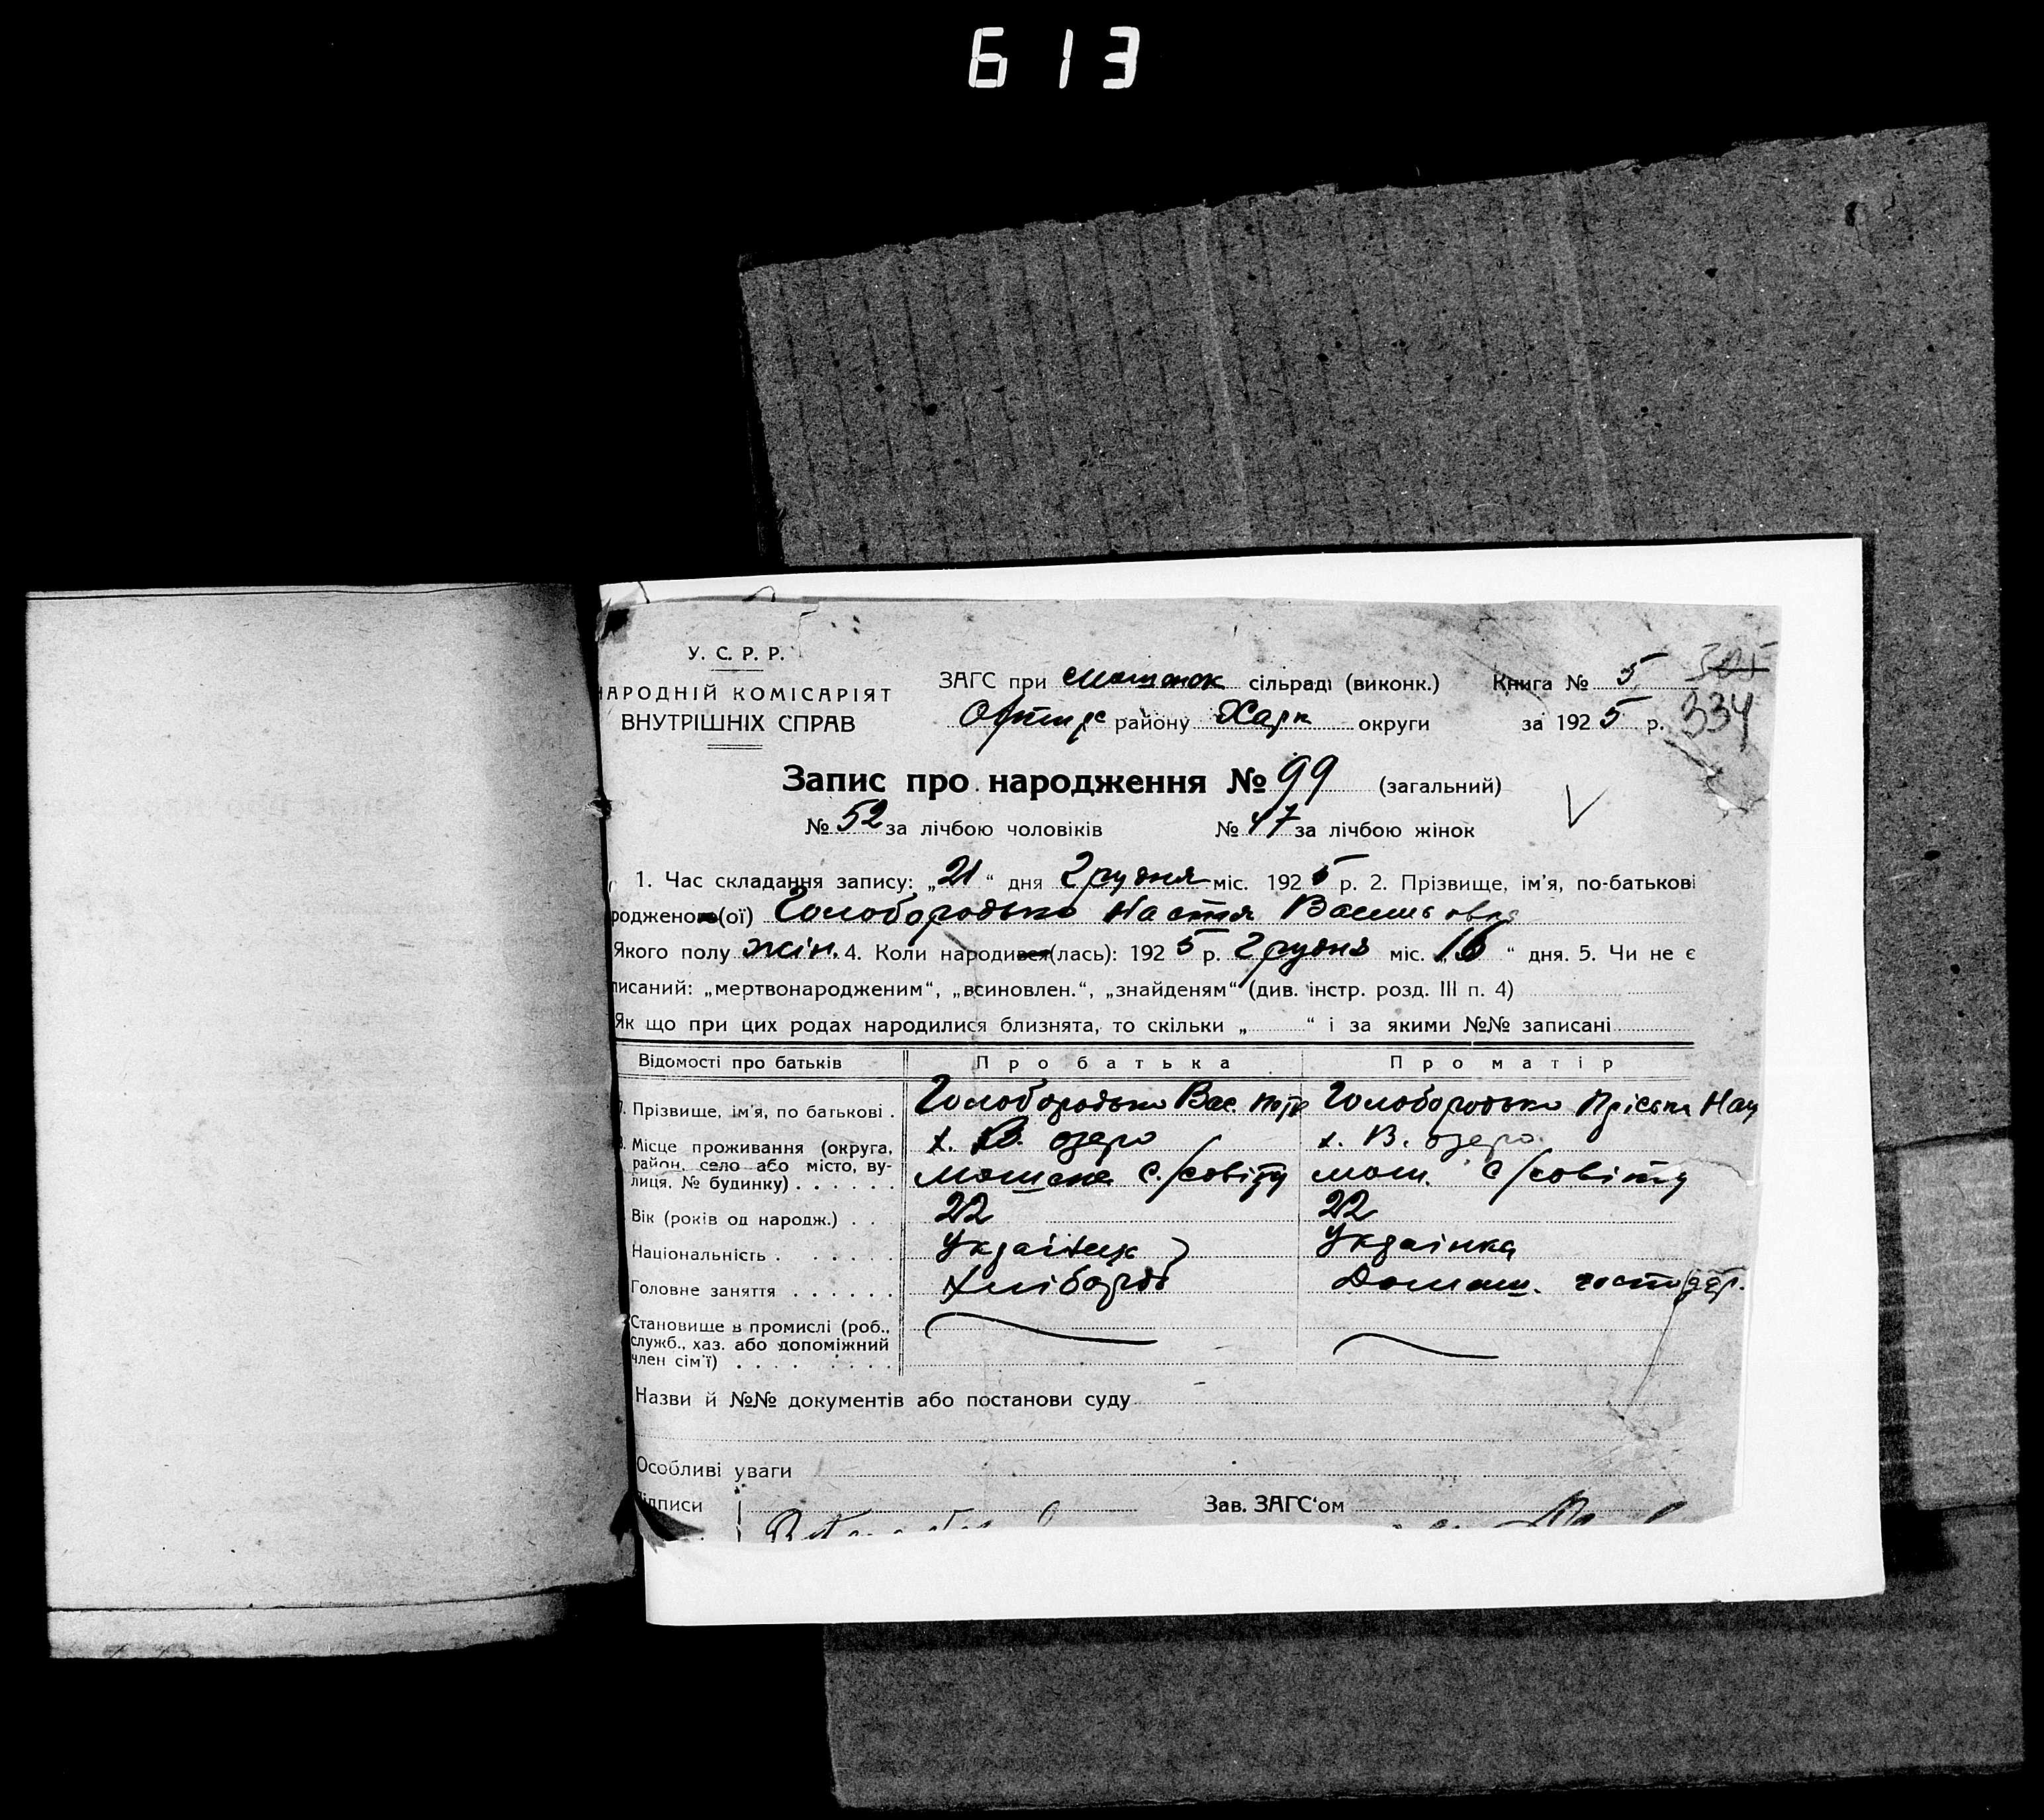 613
У. С. Р. Р.
НАРОДНІЙ КОМІСАРІЯТ
ВНУТРІШНІХ СПРАВ
ЗАГС при сільраді (виконк.)
району Харк округи
Книга № 5
за 1925 р.
334
Запис про народження № 99 (загальний)
№ 52 за лічбою чоловіків № 47 за лічбою жінок
1. Час складання запису: „21“ дня Грудня міс. 1925 р. 2. Прізвище, ім'я, по-батькові
родженого(ої) Голобородько Настя Васильовна
Якого полу жін. 4. Коли народився(лась): 1925 р. Грудня міс. „16“ дня. 5. Чи не є
писаний: „мертвонародженим“, „всиновлен.“, „знайденям“ (див. інстр. розд. III п. 4)
Як що при цих родах народилися близнята, то скільки „ “ і за якими №№ записані
Відомості про батьків Про батька Про матір
7. Прізвище, ім'я, по батькові . Голобородько Вас. Голобородько Пріська Нау
Місце проживання (округа, х. В. озеро х. В. озеро
район, село або місто, ву-
лиця, № будинку) . . . . . . с/совіту мош. с/совіту
Вік (років од народж.) . . 22 22
Національність . . . . . Українец Українка
Головне заняття . . . . . . Хлібороб Домаш. господар.
Становище в промислі (роб.,
служб., хаз. або допоміжний
член сім'ї) . . . . . . . .
Назви й №№ документів або постанови суду
Особливі уваги
Підписи Зав. ЗАГС'ом